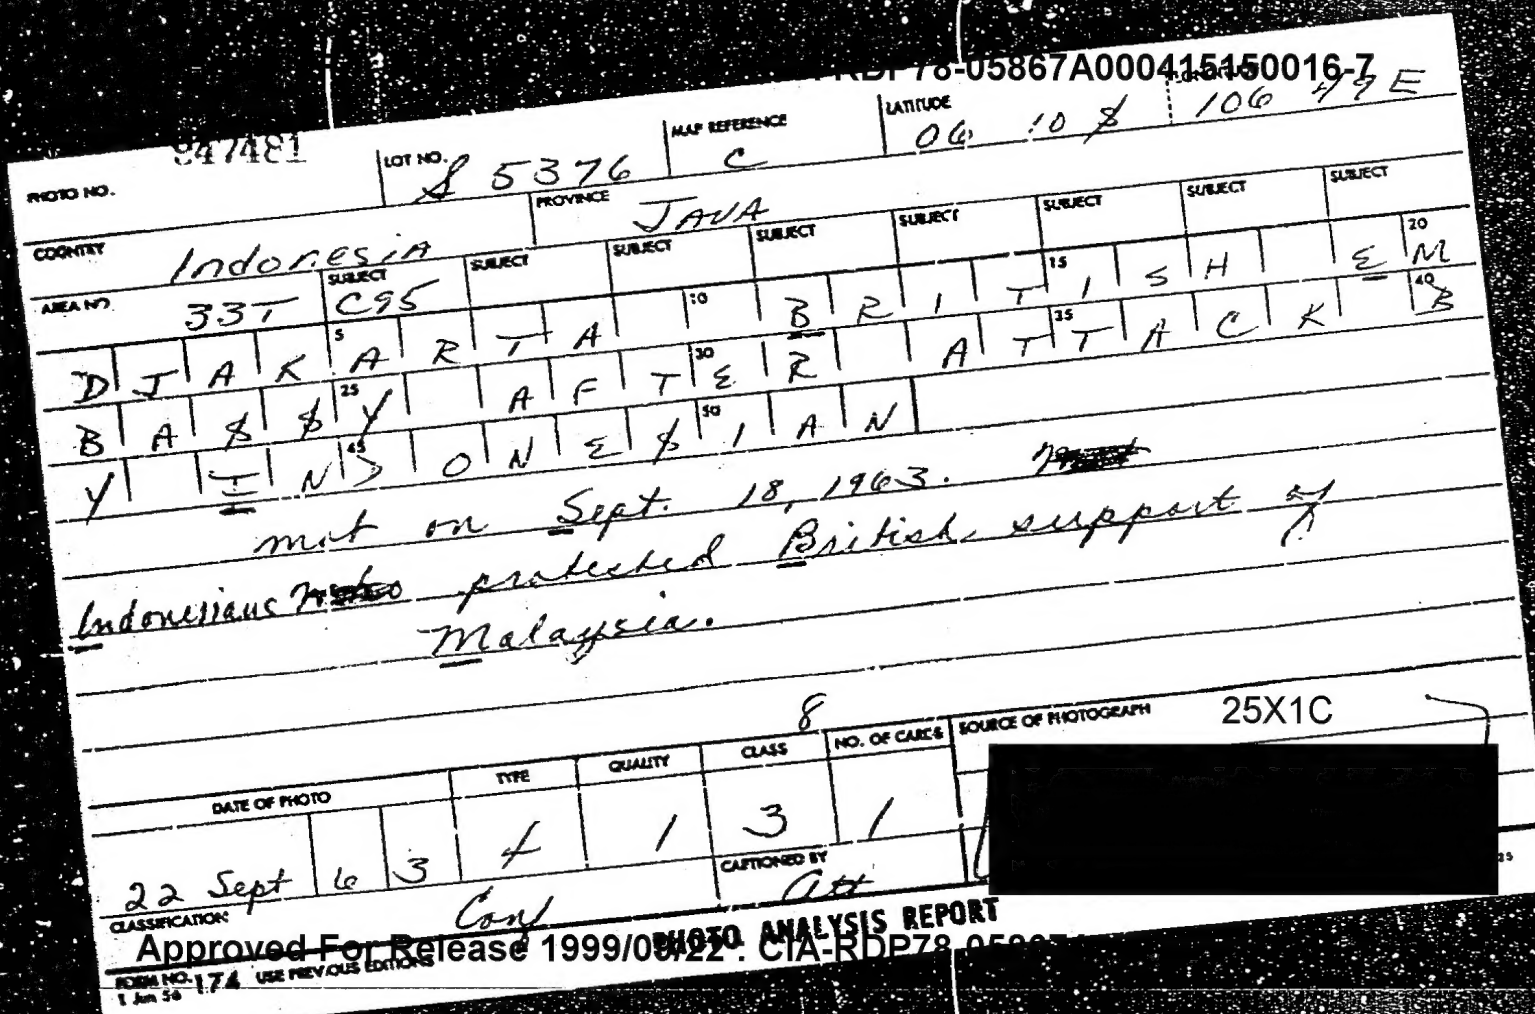 RDP78-05867A000415150016-7
PHOTO NO. 947481 LOT NO. S 5376 MAP REFERENCE C LATITUDE 06 10 S 106 E
COUNTRY Indonesia PROVINCE JAVA
AREA NO. 33T SUBJECT C95 SUBJECT SUBJECT SUBJECT SUBJECT SUBJECT SUBJECT SUBJECT
DJAKARTA BRITISH EM
BASSY AFTER ATTACK B
Y INDONESIAN
mob on Sept. 18, 1963.
Indonesians protested British support of
Malaysia.
DATE OF PHOTO TYPE QUALITY CLASS 8 NO. OF CARDS SOURCE OF PHOTOGRAPH 25X1C
22 Sept 6 3 1 3 1
CLASSIFICATION Conf CAPTIONED BY
PHOTO ANALYSIS REPORT
Approved For Release 1999/09/22 : CIA-RDP78
FORM NO. 174 USE PREVIOUS EDITIONS
1 Jun 56